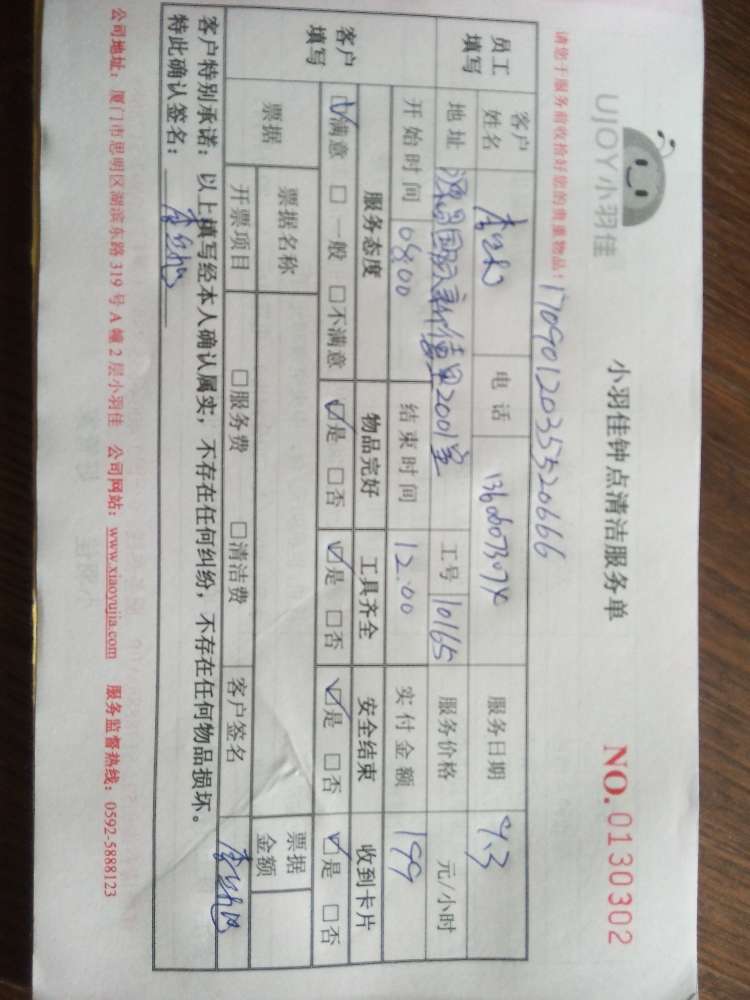 UJOY小羽佳
小羽佳钟点清洁服务单
NO.0130302
请您于服务前收拾好您的贵重物品!
17090120355520666
员工填写
客户姓名
电话
服务日期 9.3
地址 国际 2001室
工号 10165
服务价格 元/小时
开始时间 08:00
结束时间 12:00
实付金额 199
客户填写
服务态度 物品完好 工具齐全 安全结束 收到卡片
☑满意 □一般 □不满意 ☑是 □否 ☑是 □否 ☑是 □否 ☑是 □否
票据
票据名称
票据金额
开票项目 □服务费 □清洁费 客户签名
客户特别承诺：以上填写经本人确认属实，不存在任何纠纷，不存在任何物品损坏。
特此确认签名：
公司地址：厦门市思明区湖滨东路319号A幢2层小羽佳 公司网站：www.xiaoyujia.com 服务监督热线：0592-5888123